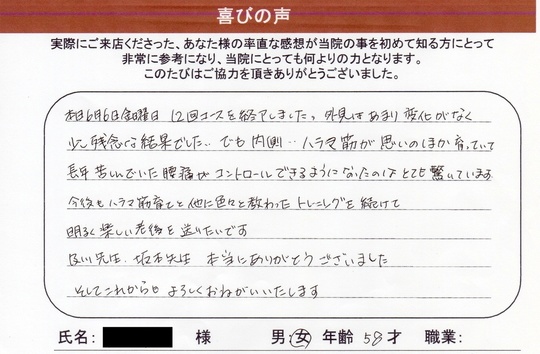 喜びの声
実際にご来店くださった、あなた様の率直な感想が当院の事を初めて知る方にとって
非常に参考になり、当院にとっても何よりの力となります。
このたびはご協力を頂きありがとうございました。
本日6月6日金曜日 12回コースを終了しました。外見はあまり変化がなく
少し残念な結果でした‥でも内側‥ハラマ筋が思いのほか育っていて
長年苦しんでいた腰痛がコントロールできるようになったのはとても驚いています
今後もハラマ筋育てと他に色々と教わったトレーニングを続けて
明るく楽しい老後を送りたいです
及川先生、坂本先生 本当にありがとうございました
そしてこれからも よろしくおねがいいたします
氏名： 様 男・女 年齢 58才 職業：